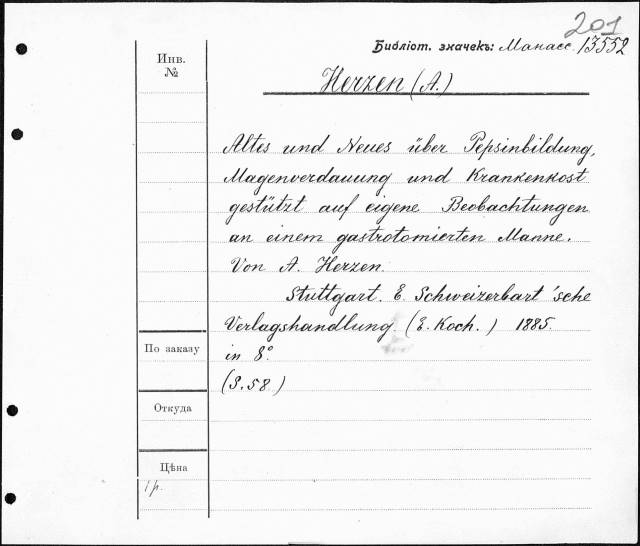 201
Библіот. значекъ: Манасс. 13552
Инв. №
Herzen (A.)
Altes und Neues über Pepsinbildung,
Magenverdauung und Krankenkost
gestützt auf eigene Beobachtungen
an einem gastrotomierten Manne.
Von A. Herzen.
Stuttgart. E. Schweizerbart'sche
Verlagshandlung. (E. Koch.) 1885.
По заказу
in 8°.
(S. 58)
Откуда
Цѣна
1 р.